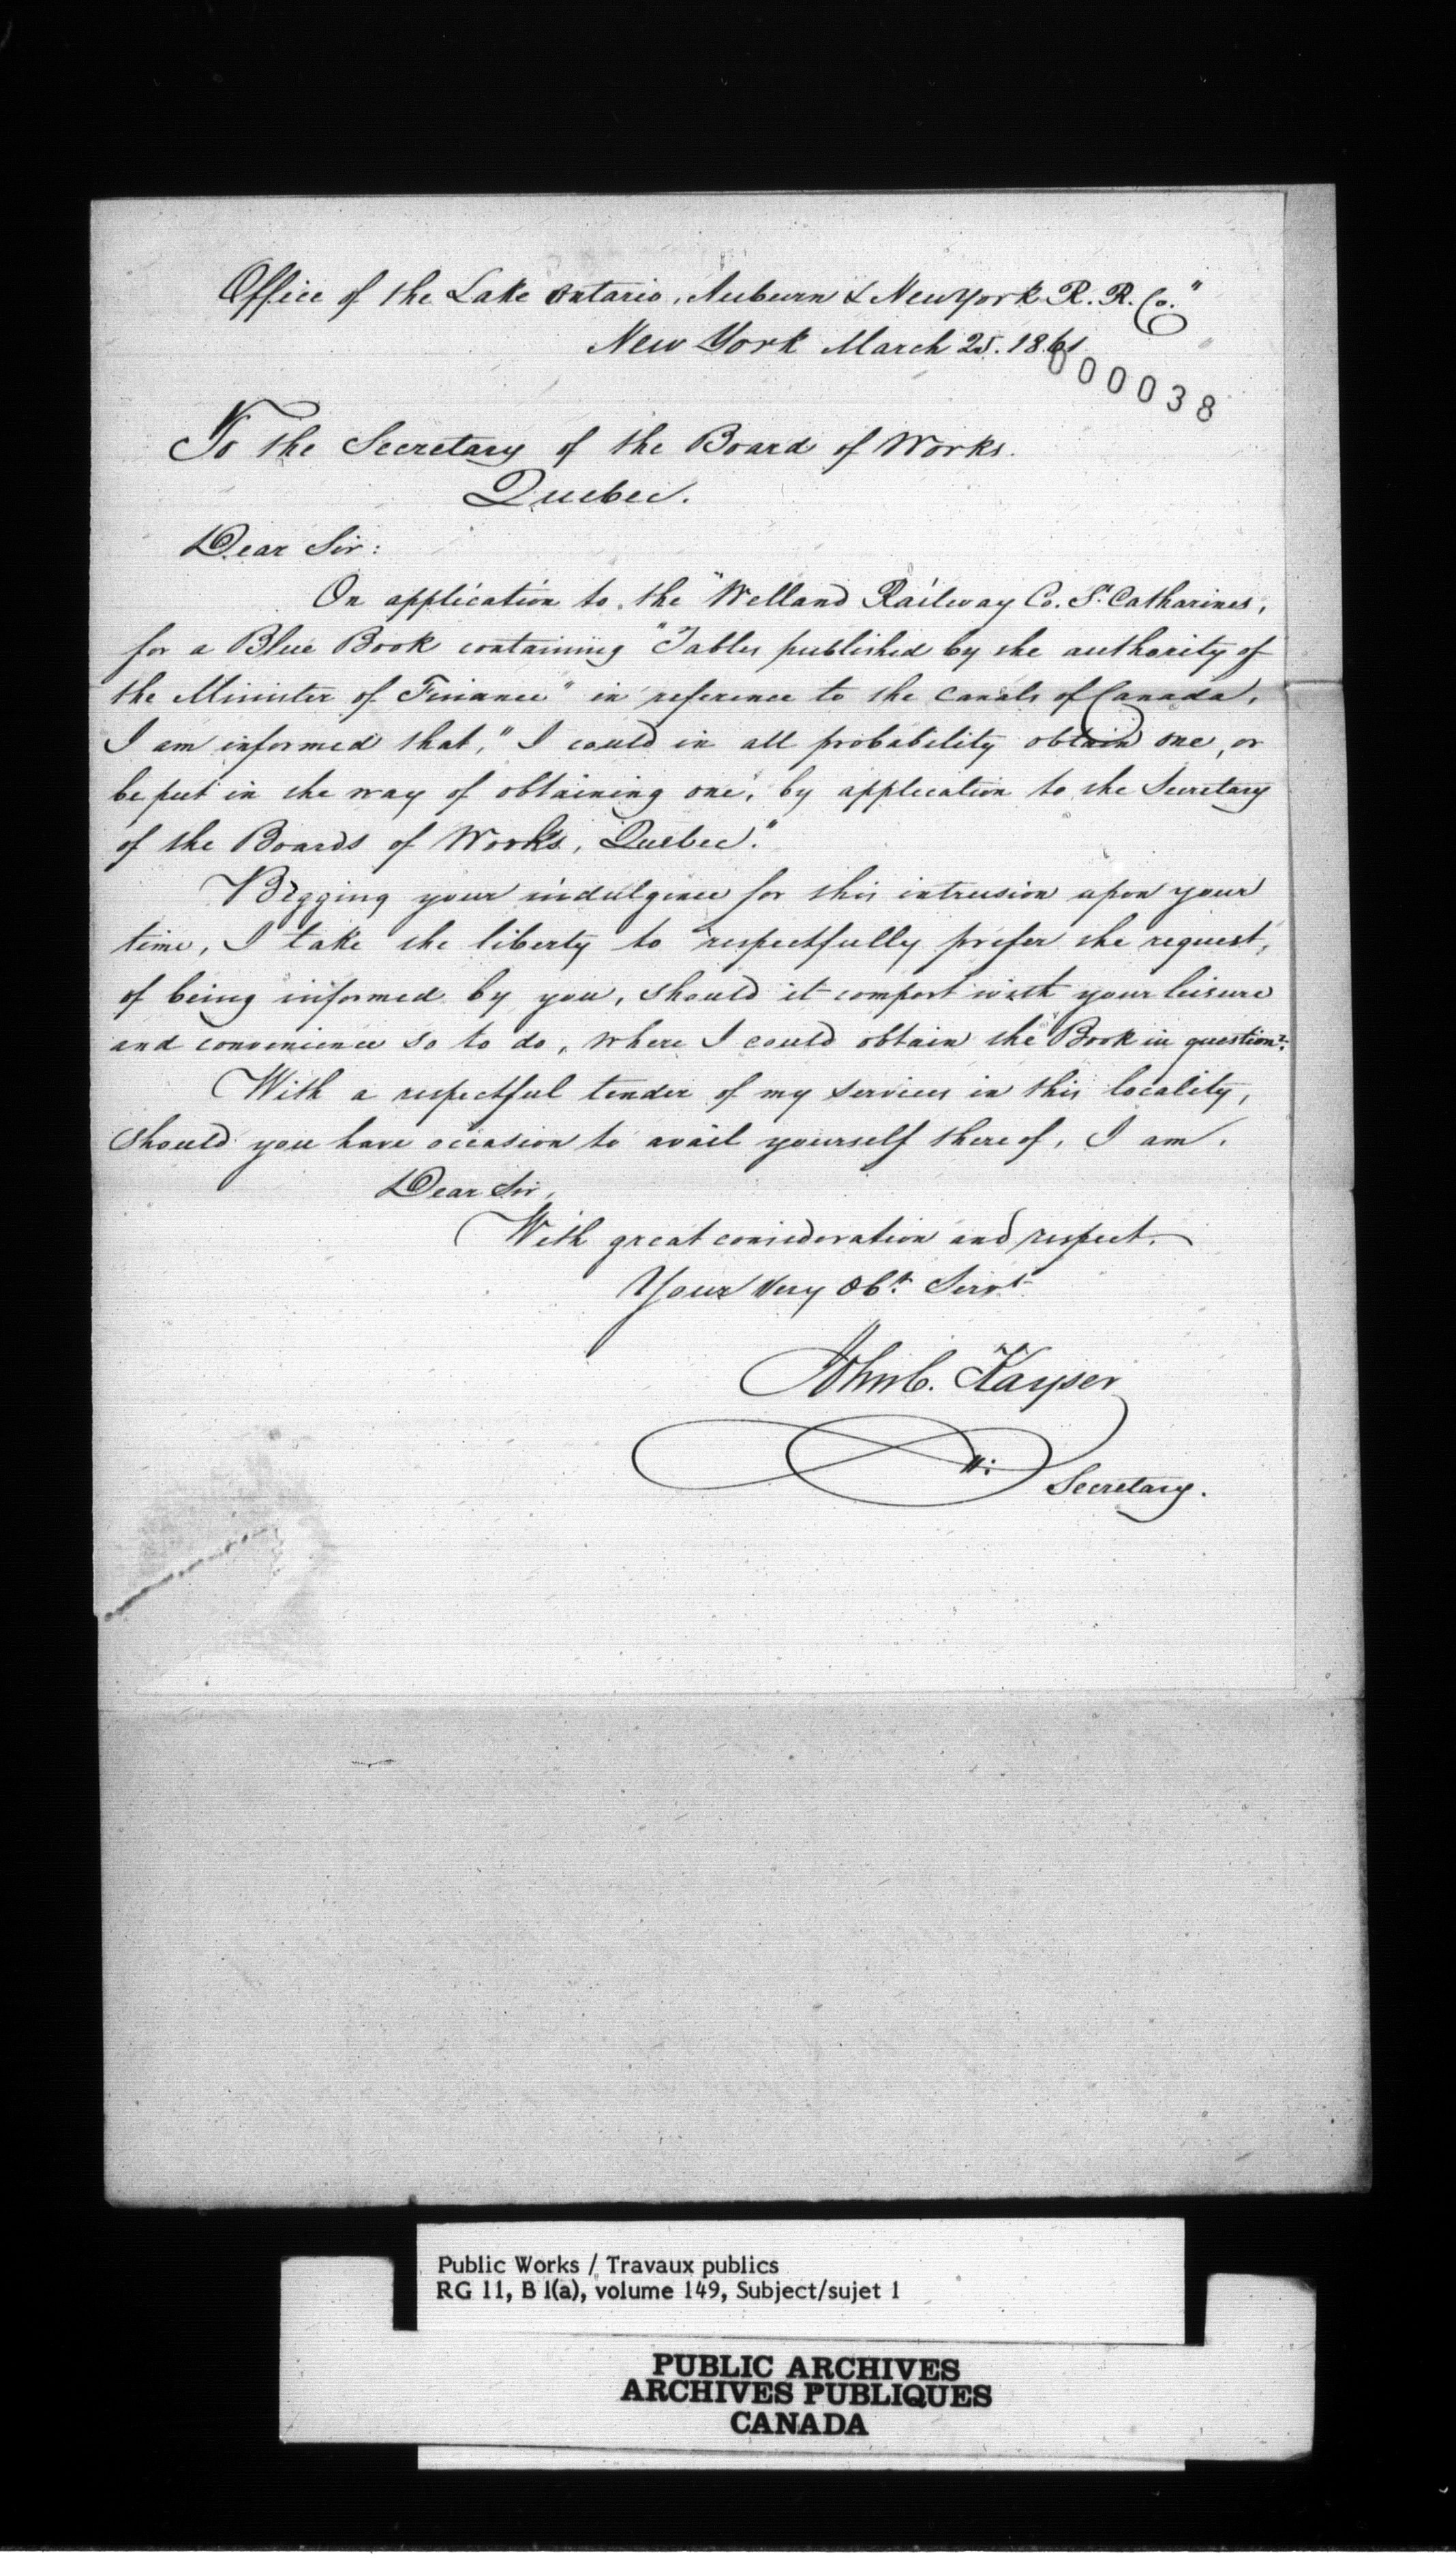 Office of the Lake Ontario, Auburn & New York R. R. Co."
New York March 25. 1861
000038
To the Secretary of the Board of Works.
Quebec.
Dear Sir:
On application to, the "Welland Railway Co. St. Catharines,
for a Blue Book containing "Tables published by the authority of
the Minister of Finance" in reference to the Canals of Canada,
I am informed that, "I could in all probability obtain one, or
be put in the way of obtaining one, by application to the Secretary
of the Boards of Works, Quebec."
Begging your indulgence for this intrusion upon your
time, I take the liberty to respectfully prefer the request,
of being informed by you, should it comport with your leisure
and convenience so to do, where I could obtain the "Book in question".
With a respectful tender of my services in this locality,
should you have occasion to avail yourself thereof, I am,
Dear Sir,
With great consideration and respect.
Your Very Obt. Servt
John C. Kayser
Secretary.
Public Works / Travaux publics
RG 11, B 1(a), volume 149, Subject/sujet 1
PUBLIC ARCHIVES
ARCHIVES PUBLIQUES
CANADA